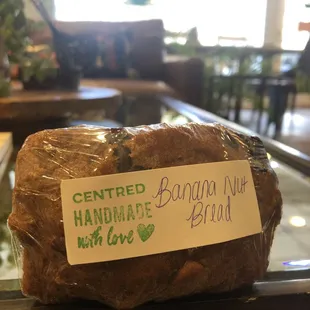 CENTRED
HANDMADE
with love
Banana Nut
Bread